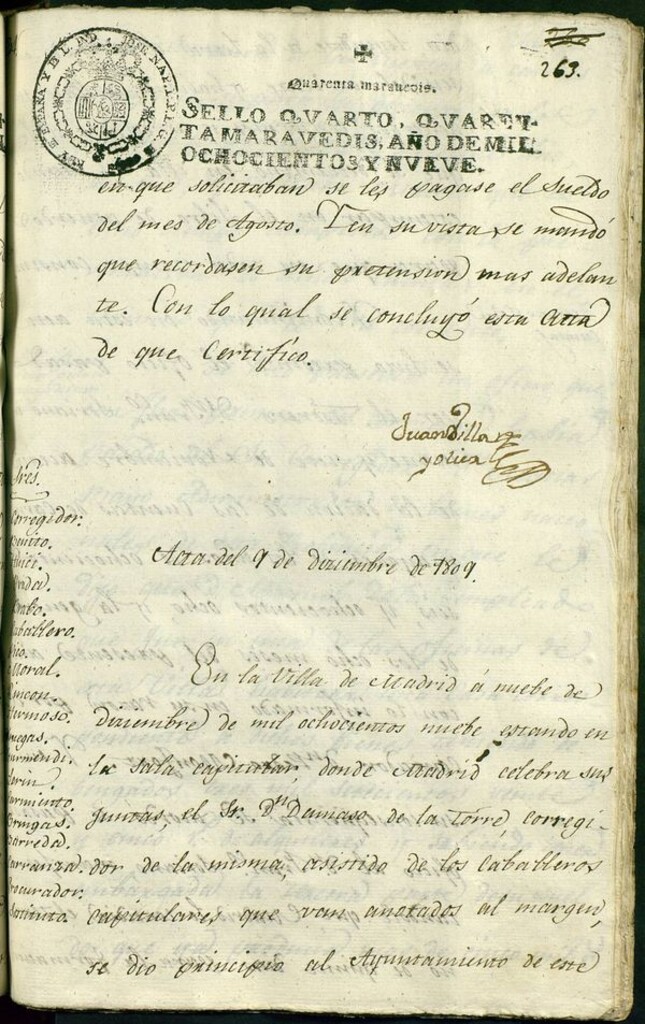 263.
Quarenta maravedis.
SELLO QVARTO, QVAREN-
TA MARAVEDIS, AÑO DE MIL
OCHOCIENTOS Y NVEVE.
en que solicitaban se les pagase el sueldo
del mes de Agosto. Y en su vista se mandó
que recordasen su pretension mas adelan
te. Con lo qual se concluyó esta Acta
de que Certifico.
Juan Villa
y Olier
Sres.
Corregidor.
Acta del 9 de diciembre de 1809.
Caballero.
Moral.
Rincon.
Hermoso.
Sarmiento.
Bringas.
Barreda.
Carranza.
Procurador.
Sustituto.
En la Villa de Madrid á nuebe de
diciembre de mil ochocientos nuebe, estando en
la sala capitular, donde Madrid celebra sus
juntas, el Sr. Dn Damaso de la Torre, Corregi-
dor de la misma, asistido de los Caballeros
Capitulares que van anotados al margen,
se dio principio al Ayuntamiento de este